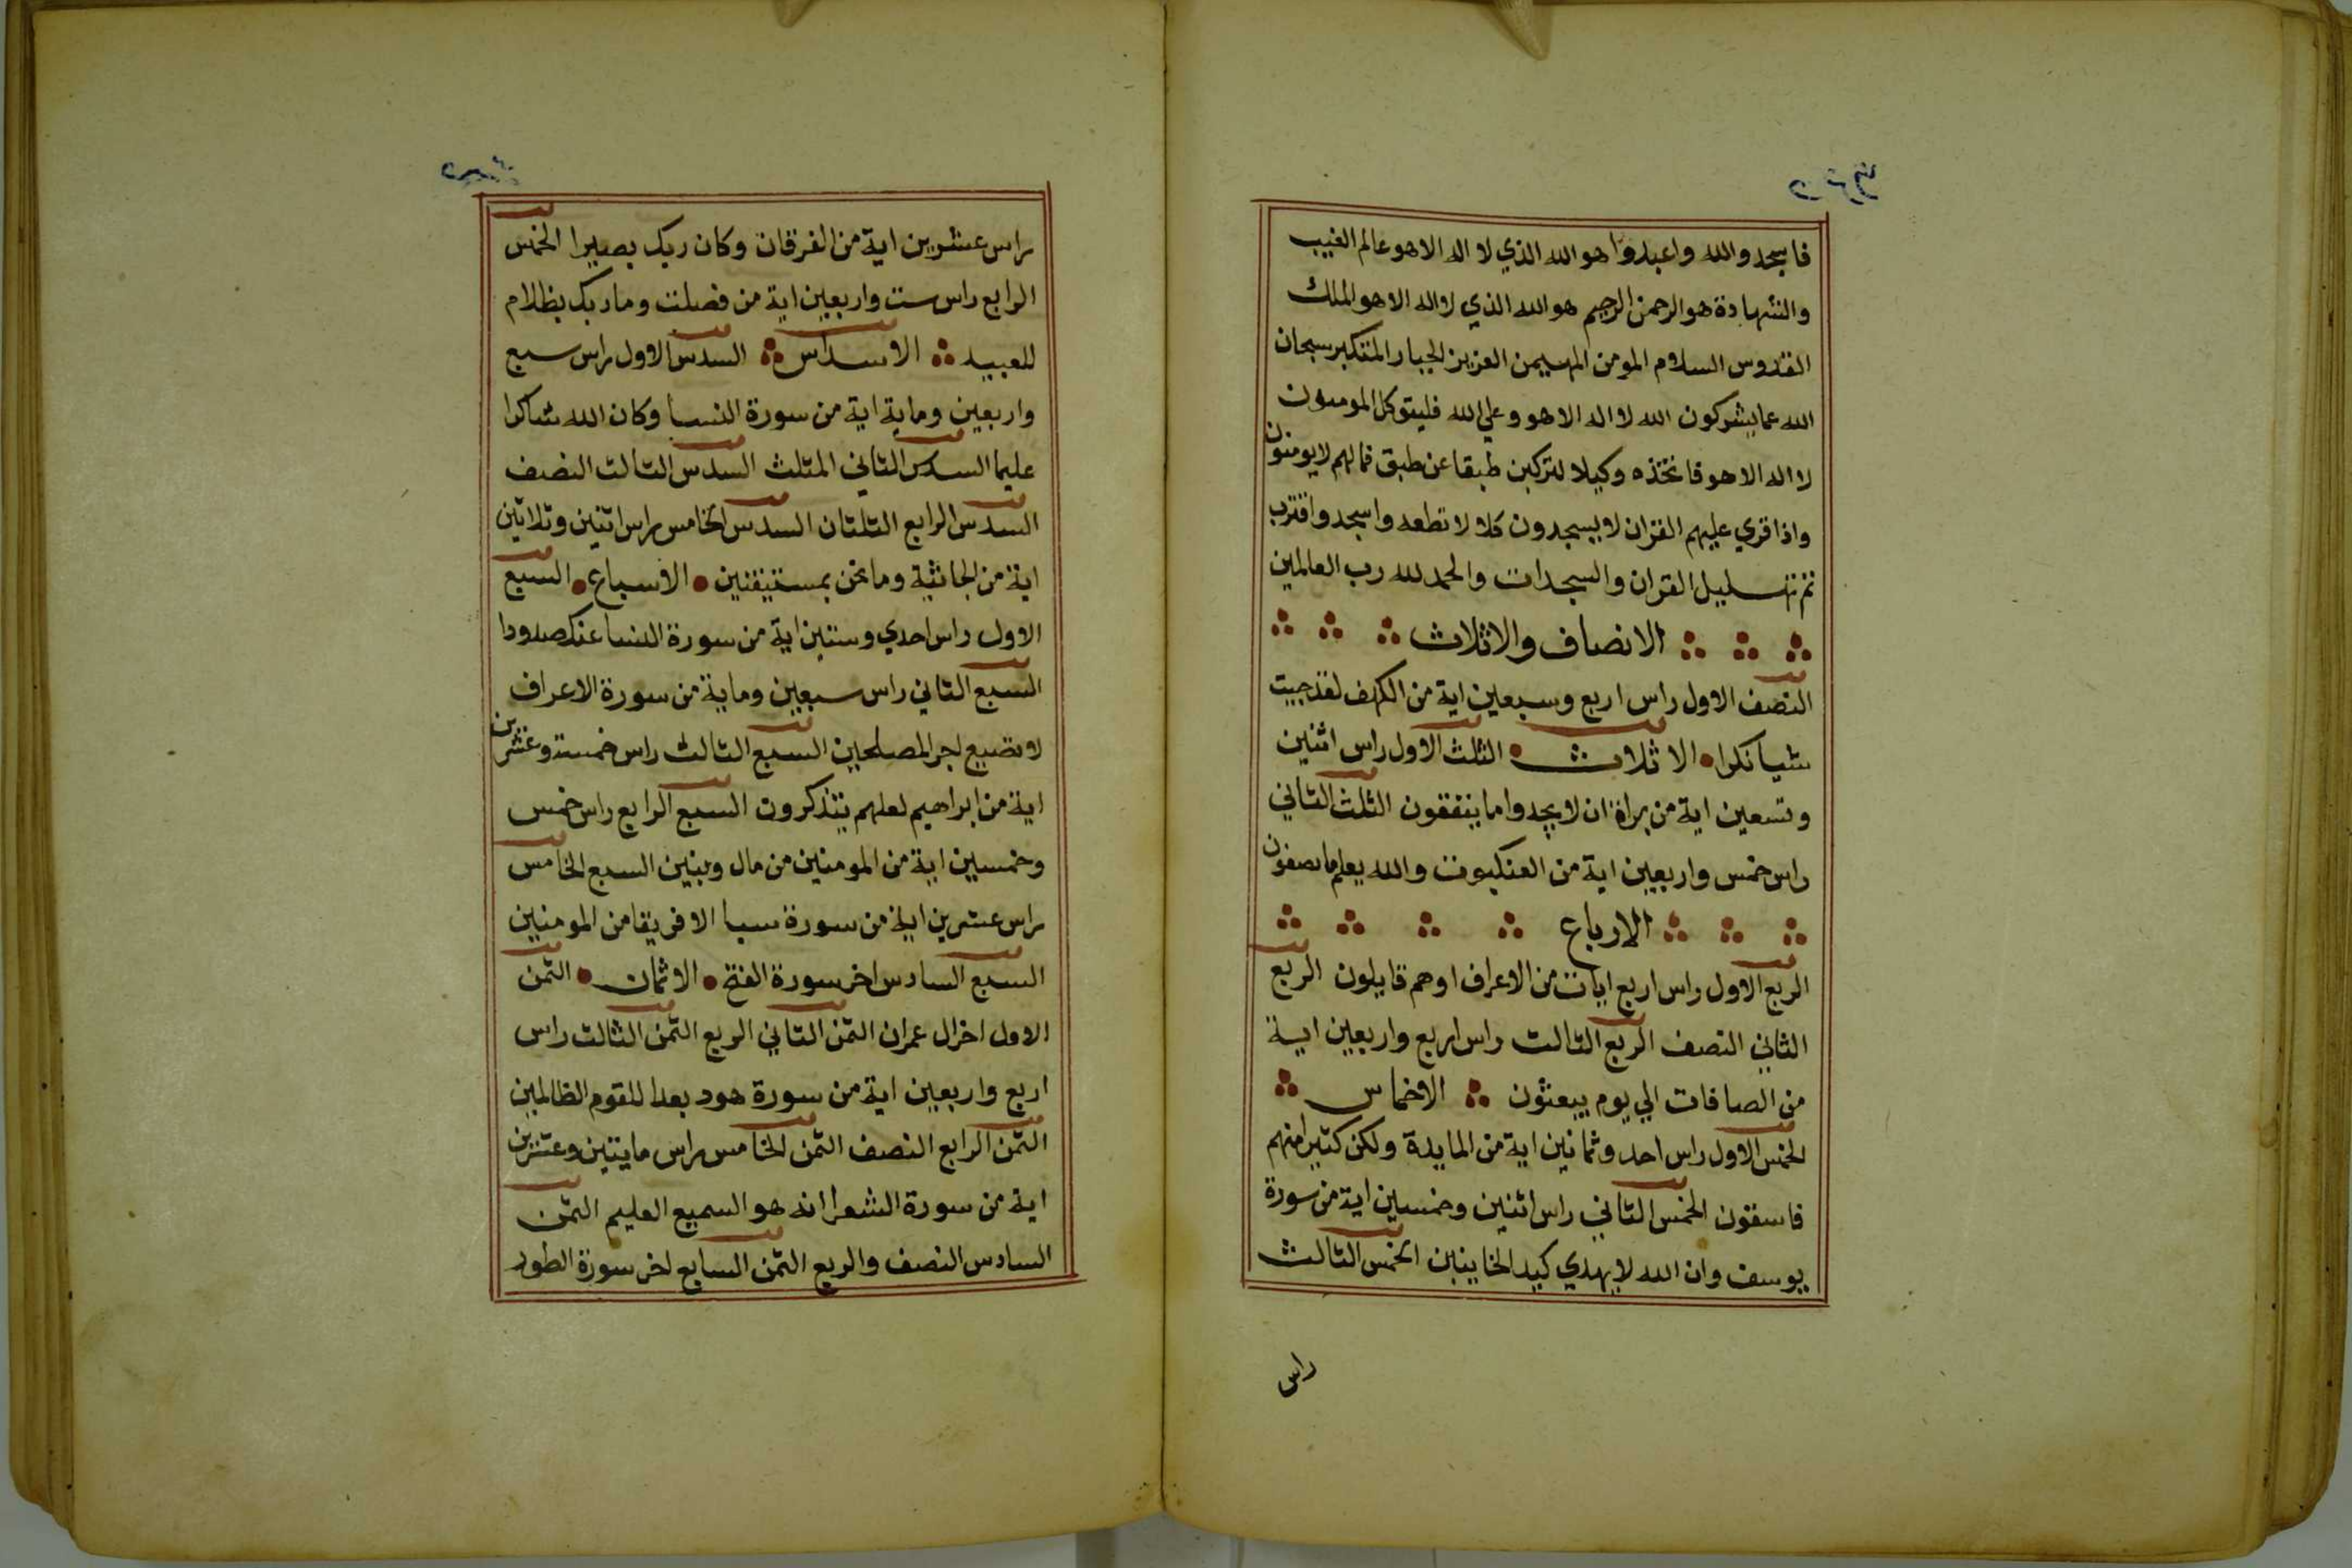 فاسجدوالله واعبدوا هو الله الذي لا اله الا هو عالم الغيب
والشهادة هو الرحمن الرحيم هو الله الذي لا اله الا هو الملك
القدوس السلام المومن المهيمن العزيز الجبار المتكبر سبحان
الله عما يشركون الله لا اله الا هو وعلي الله فليتوكل المومنون
لا اله الا هو فاتخذه وكيلا لتركبن طبقا عن طبق فمالهم لا يومنون
واذا قري عليهم القران لا يسجدون كلا لا تطعه واسجد واقترب
تم تهليل القران والسجدات والحمد لله رب العالمين
الانصاف والاثلاث
النصف الاول راس اربع وسبعين اية من الكهف لقد جيت
شيا نكرا الاثلاث الثلث الاول راس اثنين
وتسعين اية من براة ان لا يجدوا ما ينفقون الثلث الثاني
راس خمس واربعين اية من العنكبوت والله يعلم ما تصفون
الارباع
الربع الاول راس اربع ايات من الاعراف اوهم قايلون الربع
الثاني النصف الربع الثالث راس اربع واربعين اية
من الصافات الي يوم يبعثون الاخماس
الخمس الاول راس احد وثمانين اية من المايدة ولكن كثيرا منهم
فاسقون الخمس الثاني راس اثنين وخمسين اية من سورة
يوسف وان الله لا يهدي كيد الخاينين الخمس الثالث
راس
راس عشرين اية من الفرقان وكان ربك بصيرا الخمس
الرابع راس ست واربعين اية من فصلت وما ربك بظلام
للعبيد الاسداس السدس الاول راس سبع
واربعين وماية اية من سورة النسا وكان الله شاكرا
عليما السدس الثاني المثلث السدس الثالث النصف
السدس الرابع الثلثان السدس الخامس راس اثنين وثلاثين
اية من الجاثية وما نحن بمستيقنين الاسباع السبع
الاول راس احدي وستين اية من سورة النسا عنك صدودا
السبع الثاني راس سبعين وماية من سورة الاعراف
لا نضيع اجر المصلحين السبع الثالث راس خمسة وعشرين
اية من ابراهيم لعلهم يتذكرون السبع الرابع راس خمس
وخمسين اية من المومنين من مال وبنين السبع الخامس
راس عشرين اية من سورة سبا الا فريقا من المومنين
السبع السادس اخر سورة الفتح الاثمان الثمن
الاول اخر ال عمران الثمن الثاني الربع الثمن الثالث راس
اربع واربعين اية من سورة هود بعدا للقوم الظالمين
الثمن الرابع النصف الثمن الخامس راس مايتين وعشرين
اية من سورة الشعرا انه هو السميع العليم الثمن
السادس النصف والربع الثمن السابع اخر سورة الطور